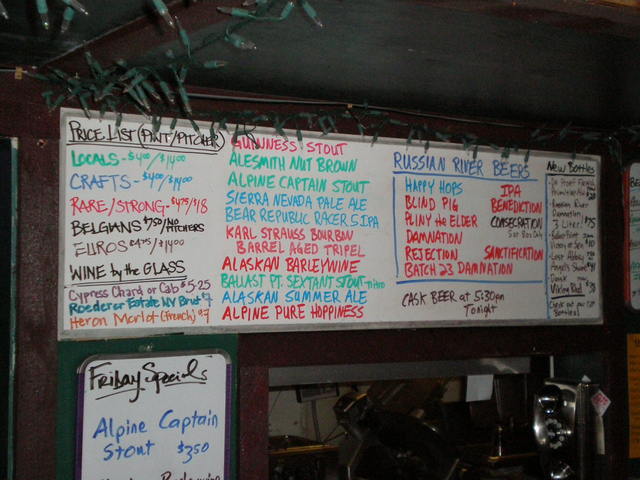 PRICE LIST (PINT/PITCHER)
LOCALS - $4.00/$14.00
CRAFTS - $4.00/$14.00
RARE/STRONG - $4.75/$18
BELGIANS $7.50/NO PITCHERS
EUROS $4.75/$14.00
WINE by the GLASS
Cypress Chard or Cab $5.25
Roederer Estate NV Brut $7
Heron Merlot (French) $7
GUINNESS STOUT
ALESMITH NUT BROWN
ALPINE CAPTAIN STOUT
SIERRA NEVADA PALE ALE
BEAR REPUBLIC RACER 5 IPA
KARL STRAUSS BOURBON
BARREL AGED TRIPEL
ALASKAN BARLEYWINE
BALLAST PT. SEXTANT STOUT nitro
ALASKAN SUMMER ALE
ALPINE PURE HOPPINESS
RUSSIAN RIVER BEERS
HAPPY HOPS
BLIND PIG
PLINY the ELDER
DAMNATION
REJECTION
BATCH 23 DAMNATION
IPA
BENEDICTION
CONSECRATION
SANCTIFICATION
CASK BEER at 5:30pm
Tonight
New Bottles
Russian River
Damnation
3 Liter!
Lost Abbey
Angel's Share
Viking Red
Check out our
Bottles!
Friday Specials
Alpine Captain
Stout $3.50